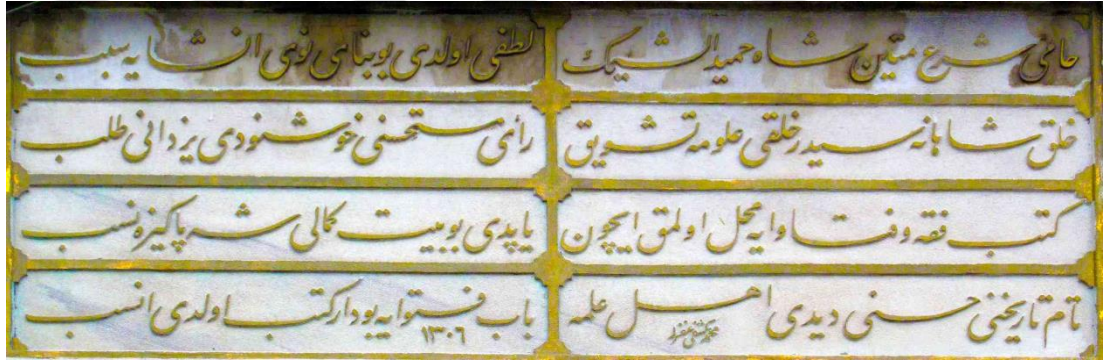 حامئ شرع متین شاه حمید الشیمك
لطفی اولدی بو بنای نوی انشایه سبب
خلق شاهانه سیدر خلقی علومه تشویق
رأی مستحسنی خوشنودی یزدانی طلب
کتب فقه و فتاوایه محل اولمق ایچون
یاپدی بو بیت کمالی شه پاکیزه نسب
تام تاریخنی حسنی دیدی اهل علمه
باب فتوایه بو دار کتب اولدی انسب
١٣٠٦